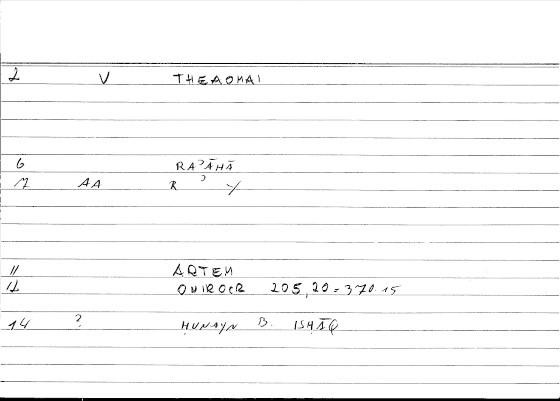 2 V THEAOMAI
6 RAʾĀHĀ
7 AA R ʾ Y
11 ARTEM
12 ONIROCR 205,20 = 370.15
14 ? ḤUNAYN B. ISḤĀQ